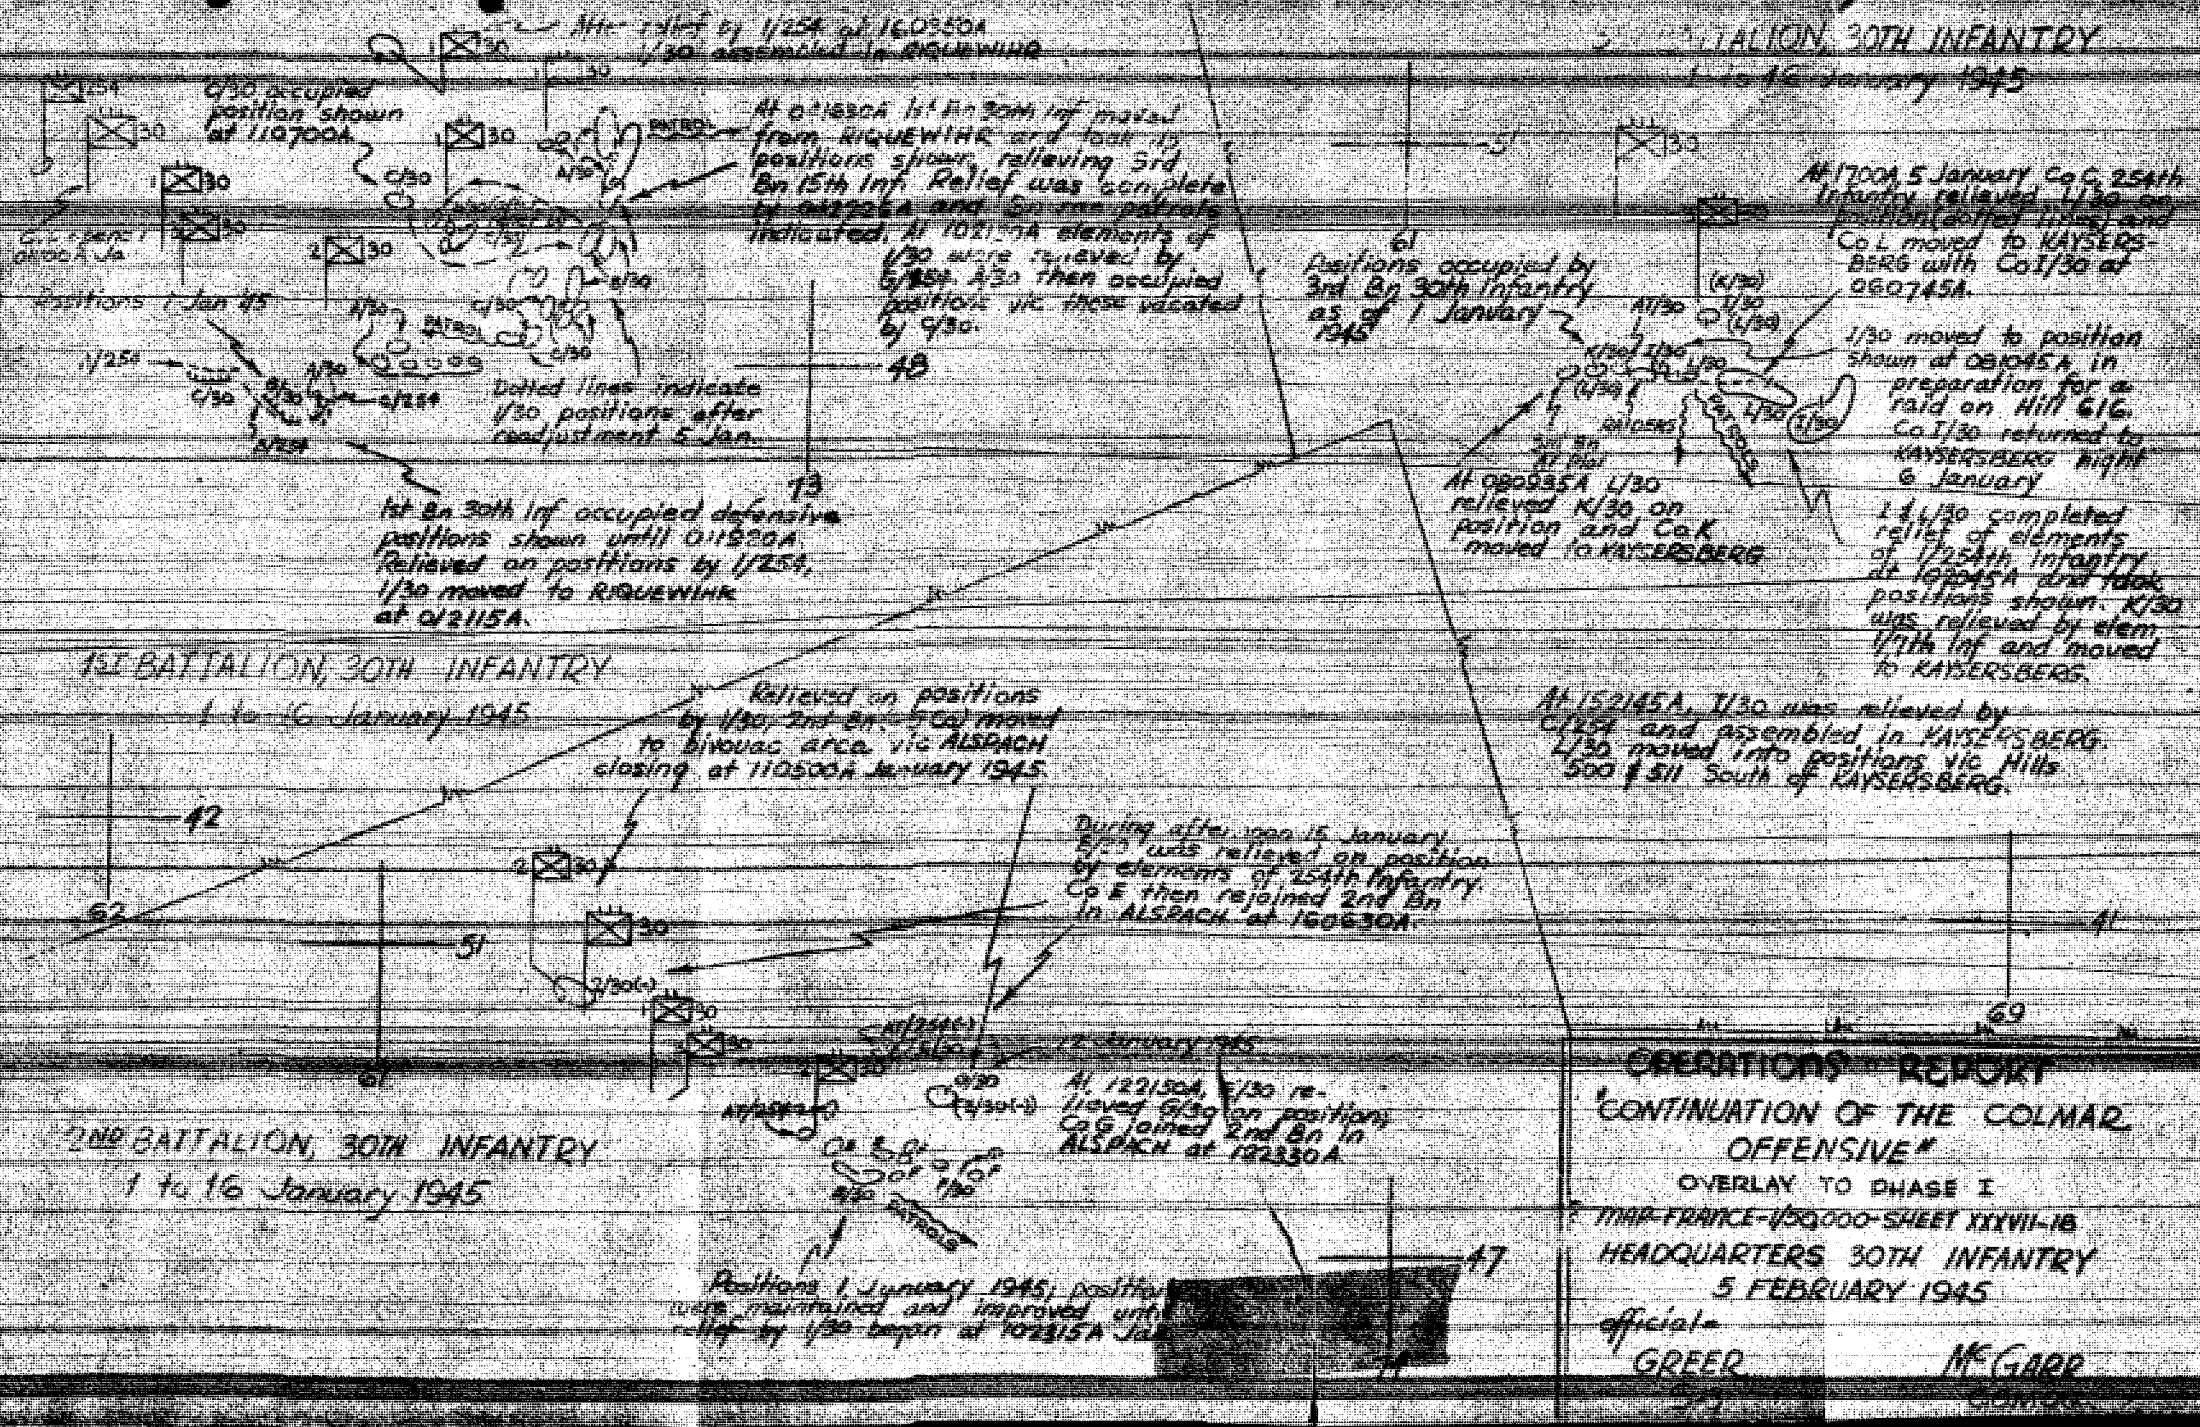 After relief by 1/254 at 160350A
1/30 assembled in RIQUEWIHR
C/30 occupied
position shown
at 110700A
1st Bn 30th Inf moved
from RIQUEWIHR and took up
positions shown, relieving 3rd
Bn 15th Inf. Relief was complete
by and Bn ran patrols
indicated. At elements of
1/30 were relieved by
G/254. A/30 then occupied
positions vic those vacated
by C/30.
PATROL
C/30
A/30
B/30
Positions 1 Jan 45
1/254
C/30
B/30
A/30
G/254
A/30
PATROL
C/30
C/30
Dotted lines indicate
1/30 positions after
readjustment 5 Jan.
48
73
1st Bn 30th Inf occupied defensive
positions shown until 011920A.
Relieved on positions by 1/254,
1/30 moved to RIQUEWIHR
at 012115A.
1ST BATTALION, 30TH INFANTRY
1 to 16 January 1945
42
62
BATTALION, 30TH INFANTRY
1 to 16 January 1945
51
61
At 1700A 5 January Co C, 254th
Infantry relieved L/30 on
position (dotted lines) and
Co L moved to KAYSERS-
BERG with Co I/30 at
060745A.
Positions occupied by
3rd Bn 30th Infantry
as of 1 January
1945
(K/30)
AT/30
L/30
(L/30)
K/30
I/30
L/30
(L/30)
RAIDERS
PATROLS
L/30
I/30
I/30 moved to position
shown at 081045A in
preparation for a
raid on Hill 616.
Co I/30 returned to
KAYSERSBERG night
6 January
At 080935A L/30
relieved K/30 on
position and Co K
moved to KAYSERSBERG
I & L/30 completed
relief of elements
of 1/254th Infantry
at 102045A and took
positions shown. K/30
was relieved by elem
1/7th Inf and moved
to KAYSERSBERG.
At 152145A, I/30 was relieved by
C/254 and assembled in KAYSERSBERG.
L/30 moved into positions vic Hills
500 & 511 South of KAYSERSBERG.
41
69
Relieved on positions
by 1/30, 2nd Bn moved
to bivouac area vic ALSPACH
closing at 110500A January 1945.
During afternoon 15 January
was relieved on position
by elements of 254th Infantry.
Co E then rejoined 2nd Bn
in ALSPACH at 160630A.
51
61
2/30(-)
12 January 1945
G/30
(2/30(-))
At 122150A, E/30 re-
lieved G/30 on position;
Co G joined 2nd Bn in
ALSPACH at 122330A.
F/30
PATROLS
2ND BATTALION, 30TH INFANTRY
1 to 16 January 1945
Positions 1 January 1945; position
were maintained and improved until
relief by 1/30 began at 102315A Jan
47
OPERATIONS REPORT
"CONTINUATION OF THE COLMAR
OFFENSIVE"
OVERLAY TO PHASE I
MAP-FRANCE-1/50,000-SHEET XXXVII-18
HEADQUARTERS 30TH INFANTRY
5 FEBRUARY 1945
official=
GREER
McGARR
COMDR